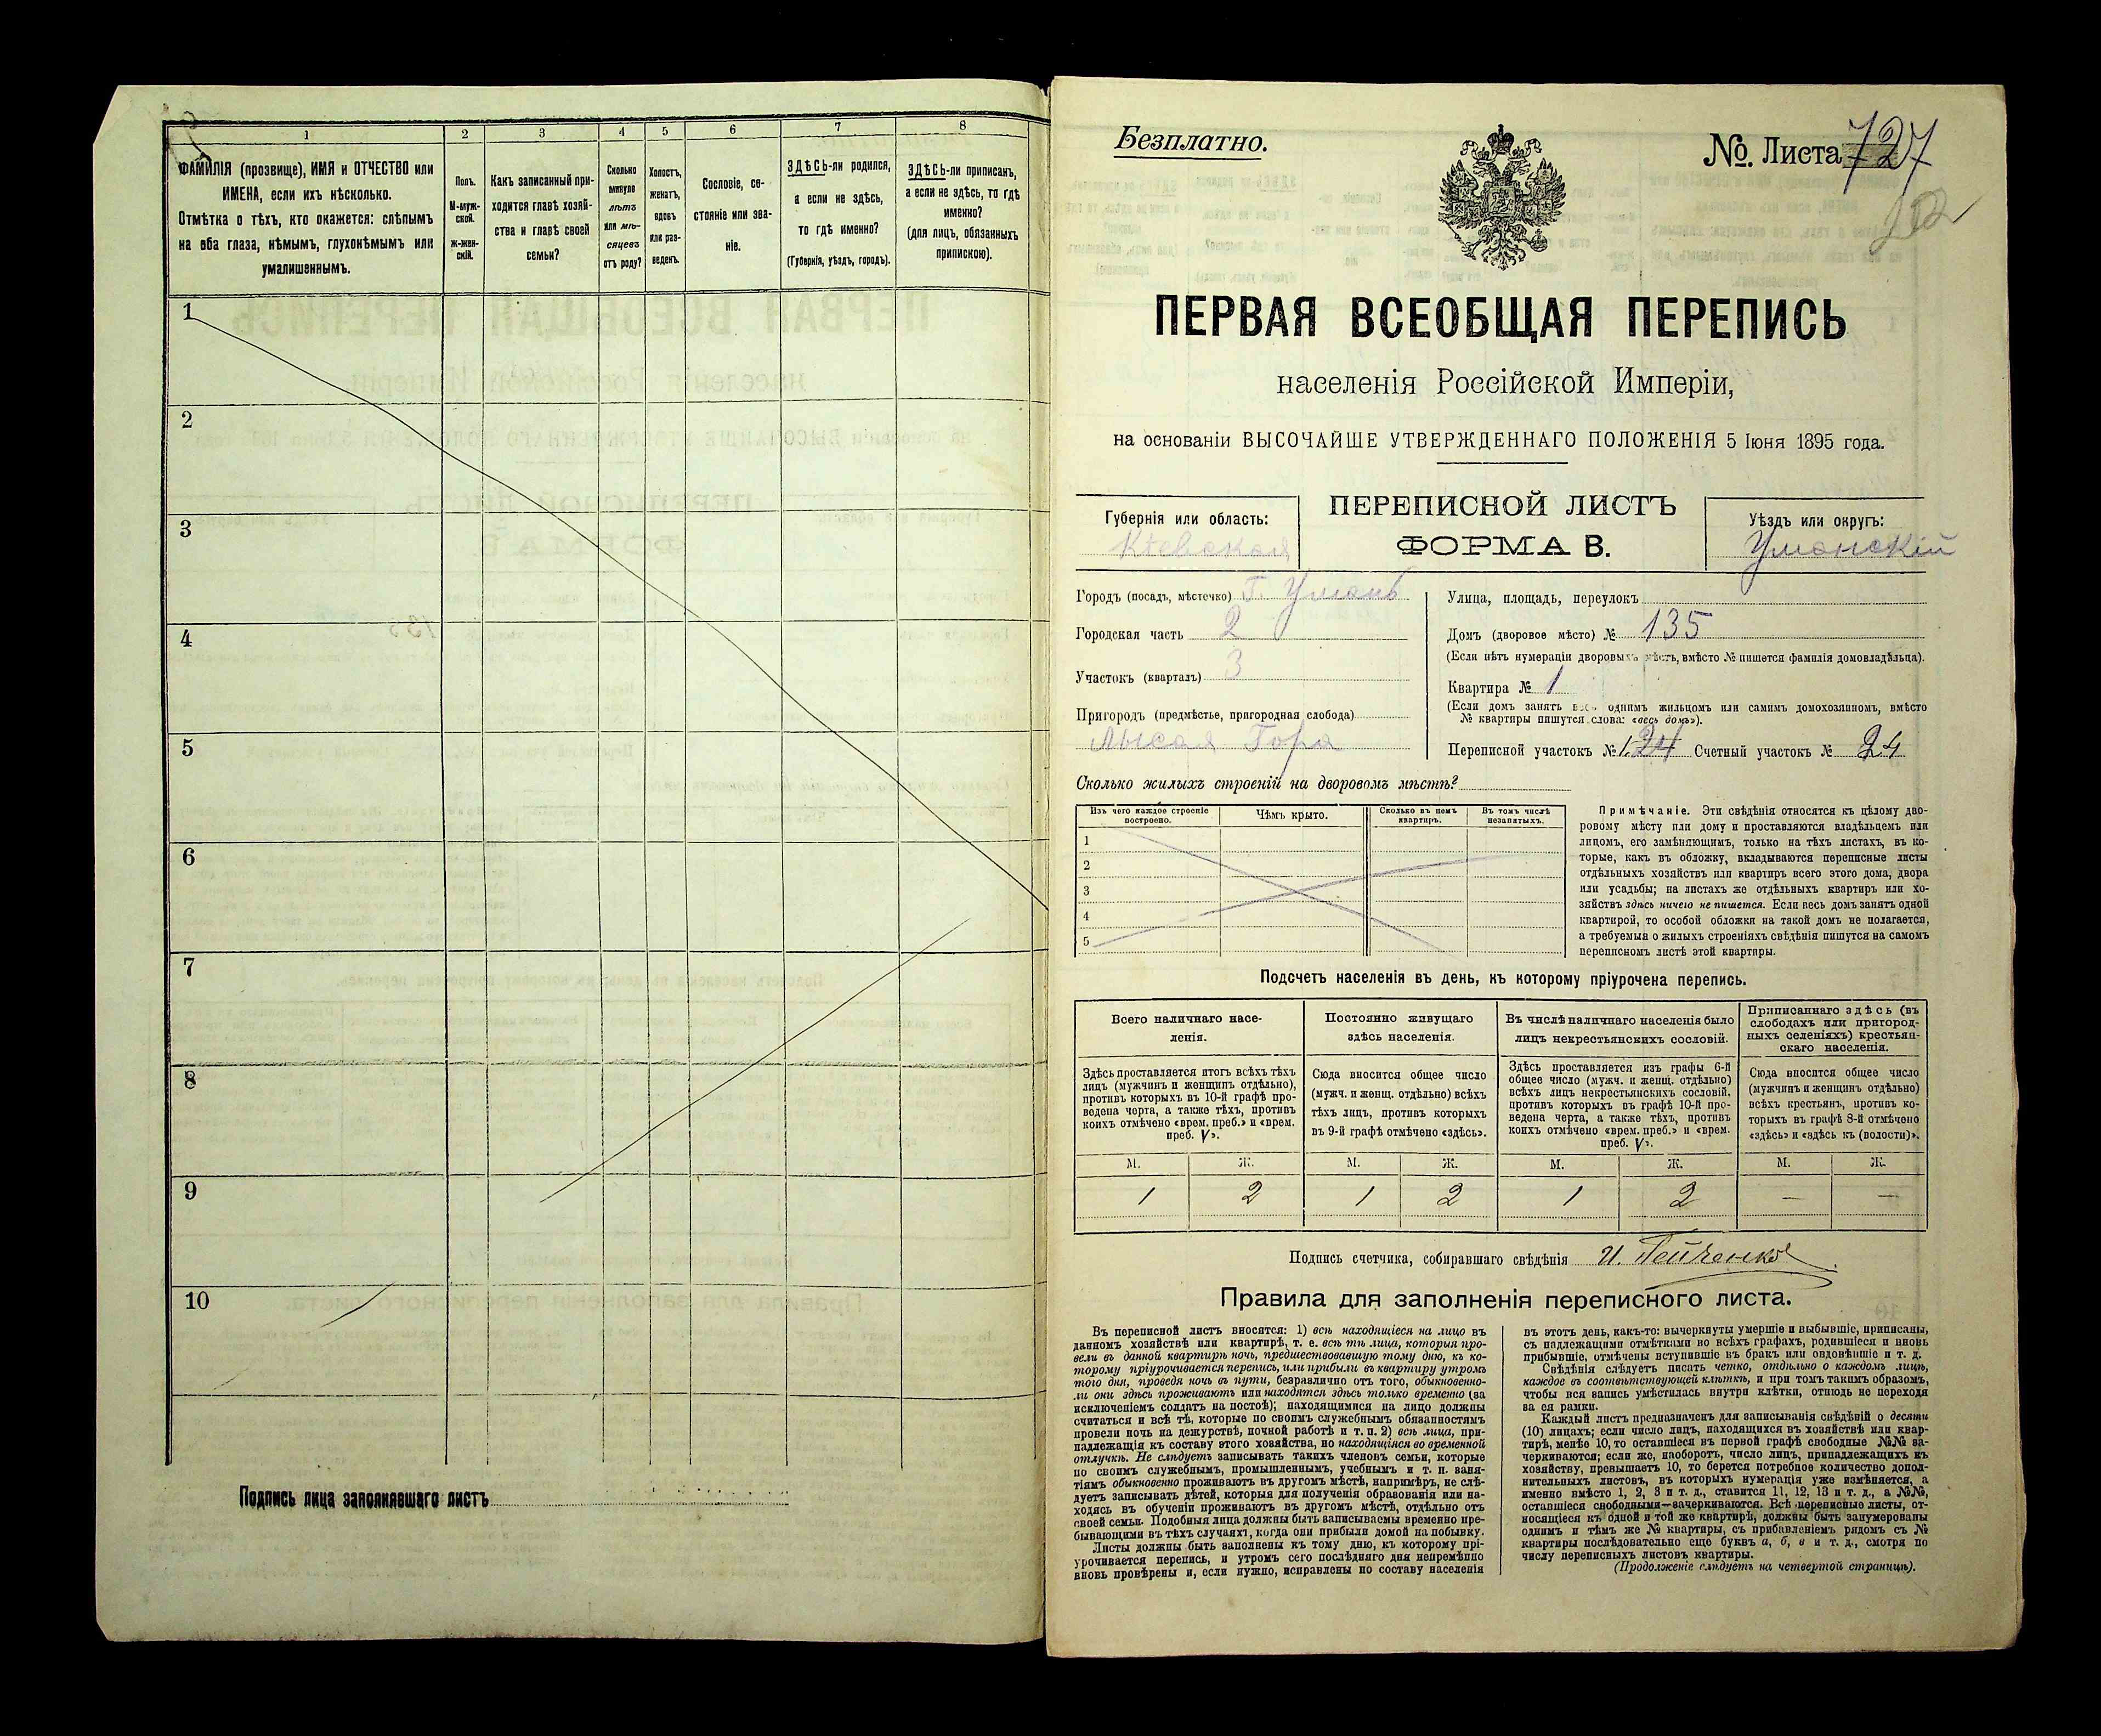 1 2 3 4 5 6 7 8
ФАМИЛІЯ (прозвище), ИМЯ и ОТЧЕСТВО или
ИМЕНА, если ихъ нѣсколько.
Отмѣтка о тѣхъ, кто окажется: слѣпымъ
на оба глаза, нѣмымъ, глухонѣмымъ или
умалишеннымъ.
Полъ.
М-муж-
ской.
ж-жен-
скій.
Какъ записанный при-
ходится главѣ хозяй-
ства и главѣ своей
семьи?
Сколько
минуло
лѣтъ
или мѣ-
сяцевъ
отъ роду?
Холостъ,
женатъ,
вдовъ
или раз-
веденъ.
Сословіе, со-
стояніе или зва-
ніе.
ЗДѢСЬ-ли родился,
а если не здѣсь,
то гдѣ именно?
(Губернія, уѣздъ, городъ).
ЗДѢСЬ-ли приписанъ,
а если не здѣсь, то гдѣ
именно?
(для лицъ, обязанныхъ
припискою).
1
2
3
4
5
6
7
8
9
10
Подпись лица заполнявшаго листъ
Безплатно.
№. Листа 727
202
ПЕРВАЯ ВСЕОБЩАЯ ПЕРЕПИСЬ
населенія Россійской Имперіи,
на основаніи ВЫСОЧАЙШЕ УТВЕРЖДЕННАГО ПОЛОЖЕНІЯ 5 Іюня 1895 года.
Губернія или область:
Кіевская
ПЕРЕПИСНОЙ ЛИСТЪ
ФОРМА В.
Уѣздъ или округъ:
Уманскій
Городъ (посадъ, мѣстечко) Г. Умань
Городская часть 2
Участокъ (кварталъ) 3
Пригородъ (предмѣстье, пригородная слобода)
Лысая Гора
Улица, площадь, переулокъ
Домъ (дворовое мѣсто) № 135
(Если нѣтъ нумераціи дворовыхъ мѣстъ, вмѣсто № пишется фамилія домовладѣльца).
Квартира № 1
(Если домъ занятъ весь однимъ жильцомъ или самимъ домохозяиномъ, вмѣсто
№ квартиры пишутся слова: «весь домъ»).
Переписной участокъ № 1. 24 Счетный участокъ № 24
Сколько жилыхъ строеній на дворовомъ мѣстѣ?
Изъ чего каждое строеніе
построено.
Чѣмъ крыто.
Сколько въ немъ
квартиръ.
Въ томъ числѣ
незанятыхъ.
1
2
3
4
5
Примѣчаніе. Эти свѣдѣнія относятся къ цѣлому дво-
ровому мѣсту или дому и проставляются владѣльцемъ или
лицомъ, его замѣняющимъ, только на тѣхъ листахъ, въ ко-
торые, какъ въ обложку, вкладываются переписные листы
отдѣльныхъ хозяйствъ или квартиръ всего этого дома, двора
или усадьбы; на листахъ же отдѣльныхъ квартиръ или хо-
зяйствъ здѣсь ничего не пишется. Если весь домъ занятъ одной
квартирой, то особой обложки на такой домъ не полагается,
а требуемыя о жилыхъ строеніяхъ свѣдѣнія пишутся на самомъ
переписномъ листѣ этой квартиры.
Подсчетъ населенія въ день, къ которому пріурочена перепись.
Всего наличнаго насе-
ленія.
Здѣсь проставляется итогъ всѣхъ тѣхъ
лицъ (мужчинъ и женщинъ отдѣльно),
противъ которыхъ въ 10-й графѣ про-
ведена черта, а также тѣхъ, противъ
коихъ отмѣчено «врем. преб.» и «врем.
преб. V».
Постоянно живущаго
здѣсь населенія.
Сюда вносится общее число
(мужч. и женщ. отдѣльно) всѣхъ
тѣхъ лицъ, противъ которыхъ
въ 9-й графѣ отмѣчено «здѣсь».
Въ числѣ наличнаго населенія было
лицъ некрестьянскихъ сословій.
Здѣсь проставляется изъ графы 6-й
общее число (мужч. и женщ. отдѣльно)
всѣхъ лицъ некрестьянскихъ сословій,
противъ которыхъ въ графѣ 10-й про-
ведена черта, а также тѣхъ, противъ
коихъ отмѣчено «врем. преб.» и «врем.
преб. V».
Приписаннаго здѣсь (въ
слободахъ или пригород-
ныхъ селеніяхъ) крестьян-
скаго населенія.
Сюда вносится общее число
(мужчинъ и женщинъ отдѣльно)
всѣхъ крестьянъ, противъ ко-
торыхъ въ графѣ 8-й отмѣчено
«здѣсь» и «здѣсь къ (волости)».
М. Ж. М. Ж. М. Ж. М. Ж.
1 2 1 2 1 2 — —
Подпись счетчика, собиравшаго свѣдѣнія И.
Правила для заполненія переписного листа.
Въ переписной листъ вносятся: 1) всѣ находящіеся на лицо въ
данномъ хозяйствѣ или квартирѣ, т. е. всѣ тѣ лица, которыя про-
вели въ данной квартирѣ ночь, предшествовавшую тому дню, къ ко-
торому пріурочивается перепись, или прибыли въ квартиру утромъ
того дня, проведя ночь въ пути, безразлично отъ того, обыкновенно-
ли они здѣсь проживаютъ или находятся здѣсь только временно (за
исключеніемъ солдатъ на постоѣ); находящимися на лицо должны
считаться и всѣ тѣ, которые по своимъ служебнымъ обязанностямъ
провели ночь на дежурствѣ, ночной работѣ и т. п. 2) всѣ лица, при-
надлежащія къ составу этого хозяйства, но находящіяся во временной
отлучкѣ. Не слѣдуетъ записывать такихъ членовъ семьи, которые
по своимъ служебнымъ, промышленнымъ, учебнымъ и т. п. заня-
тіямъ обыкновенно проживаютъ въ другомъ мѣстѣ, напримѣръ, не слѣ-
дуетъ записывать дѣтей, которыя для полученія образованія или на-
ходясь въ обученіи проживаютъ въ другомъ мѣстѣ, отдѣльно отъ
своей семьи. Подобныя лица должны быть записываемы временно пре-
бывающими въ тѣхъ случаяхъ, когда они прибыли домой на побывку.
Листы должны быть заполнены къ тому дню, къ которому прі-
урочивается перепись, и утромъ сего послѣдняго дня непремѣнно
вновь провѣрены и, если нужно, исправлены по составу населенія
въ этотъ день, какъ-то: вычеркнуты умершіе и выбывшіе, приписаны,
съ надлежащими отмѣтками во всѣхъ графахъ, родившіеся и вновь
прибывшіе, отмѣчены вступившіе въ бракъ или овдовѣвшіе и т. д.
Свѣдѣнія слѣдуетъ писать четко, отдѣльно о каждомъ лицѣ,
каждое въ соотвѣтствующей клѣткѣ, и при томъ такимъ образомъ,
чтобы вся запись умѣстилась внутри клѣтки, отнюдь не переходя
за ея рамки.
Каждый листъ предназначенъ для записыванія свѣдѣній о десяти
(10) лицахъ; если число лицъ, находящихся въ хозяйствѣ или квар-
тирѣ, менѣе 10, то оставшіеся въ первой графѣ свободные №№ за-
черкиваются; если же, наоборотъ, число лицъ, принадлежащихъ къ
хозяйству, превышаетъ 10, то берется потребное количество допол-
нительныхъ листовъ, въ которыхъ нумерація уже измѣняется, а
именно вмѣсто 1, 2, 3 и т. д., ставится 11, 12, 13 и т. д., а №№,
оставшіеся свободными—зачеркиваются. Всѣ переписные листы, от-
носящіеся къ одной и той же квартирѣ, должны быть занумерованы
однимъ и тѣмъ же № квартиры, съ прибавленіемъ рядомъ съ №
квартиры послѣдовательно еще буквъ а, б, в и т. д., смотря по
числу переписныхъ листовъ квартиры.
(Продолженіе слѣдуетъ на четвертой страницѣ).